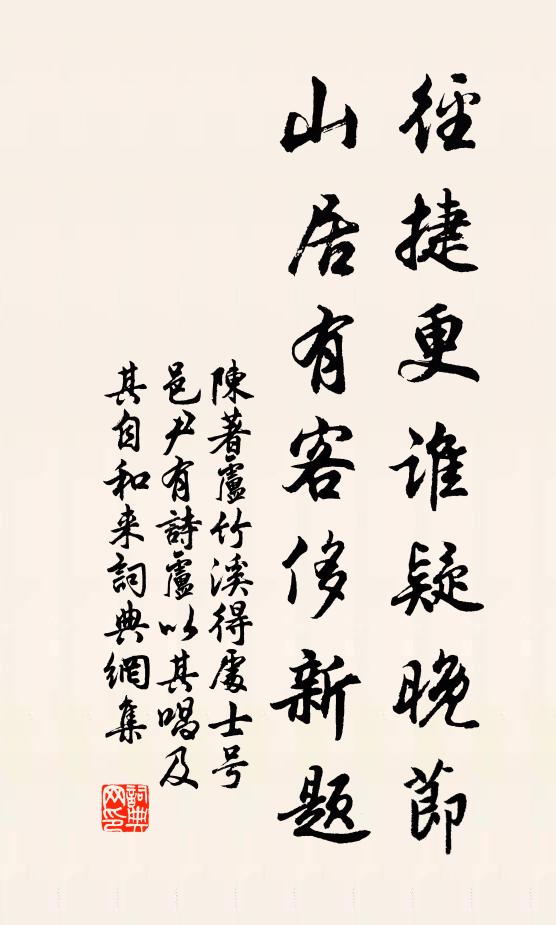 徑捷更誰疑晚節
山居有客侈新題
陳著盧竹溪得處士号
邑尹有詩盧以其唱及
其自和来詞典網集
詞典网印